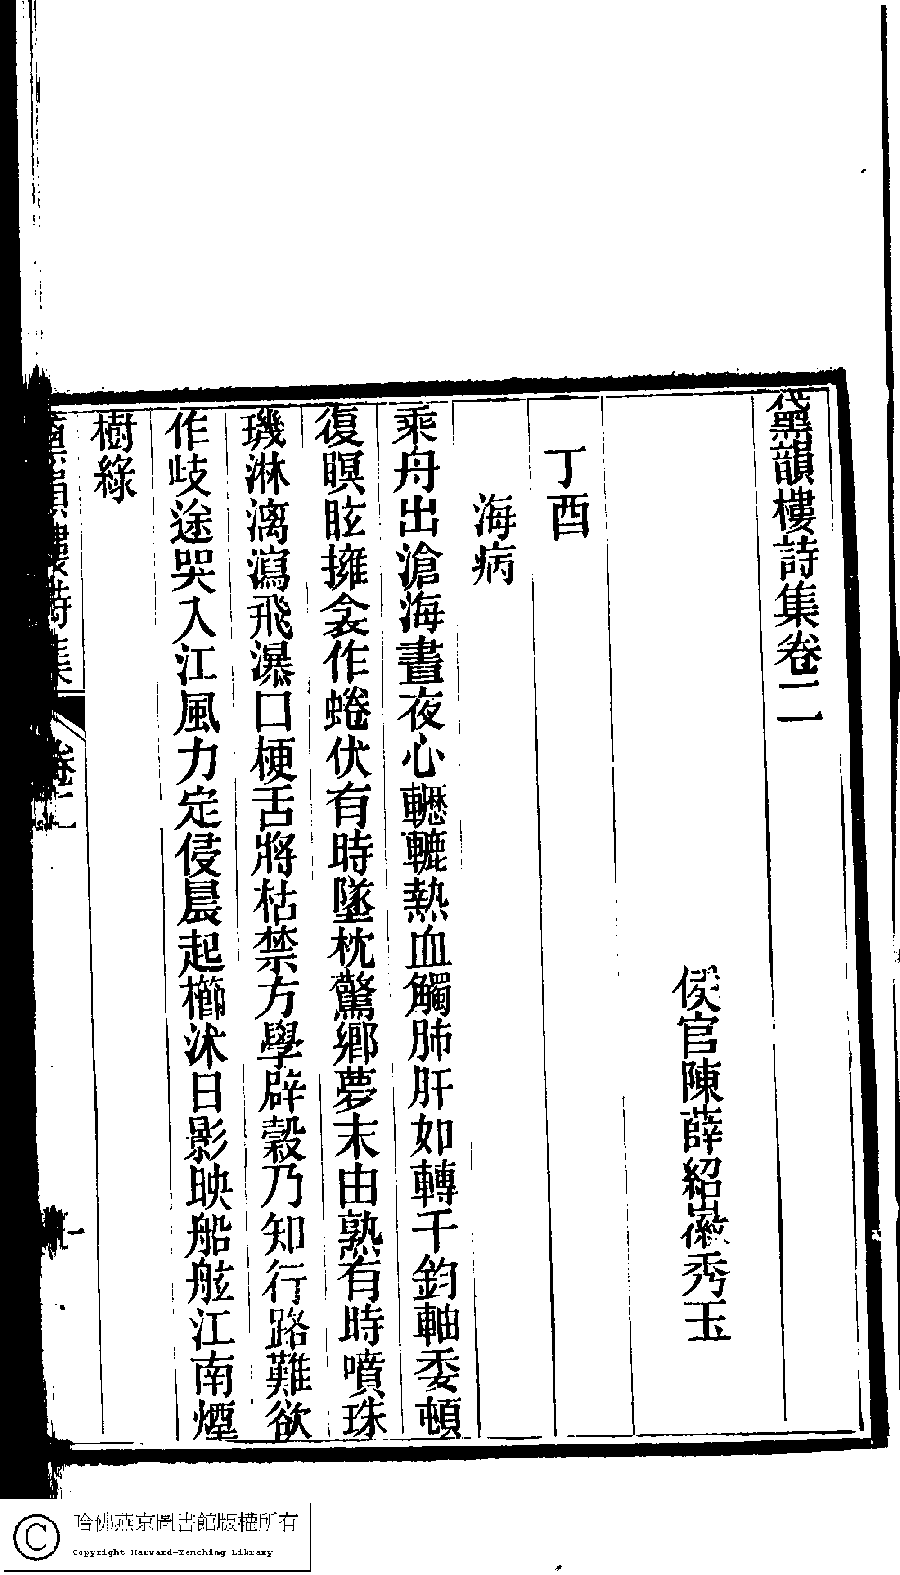 黛韻樓詩集卷二
侯官陳薛紹徽秀玉
丁酉
海病
乘舟出滄海晝夜心轣轆熱血觸肺肝如轉千鈞軸委頓
復瞑眩擁衾作蜷伏有時墜枕驚鄉夢末由熟有時噴珠
璣淋漓瀉飛瀑口梗舌將枯禁方學辟穀乃知行路難欲
作歧途哭入江風力定侵晨起櫛沐日影映船舷江南煙
樹綠
黛韻樓詩集
卷二
一
哈佛燕京圖書館版權所有
Copyright Harvard-Yenching Library